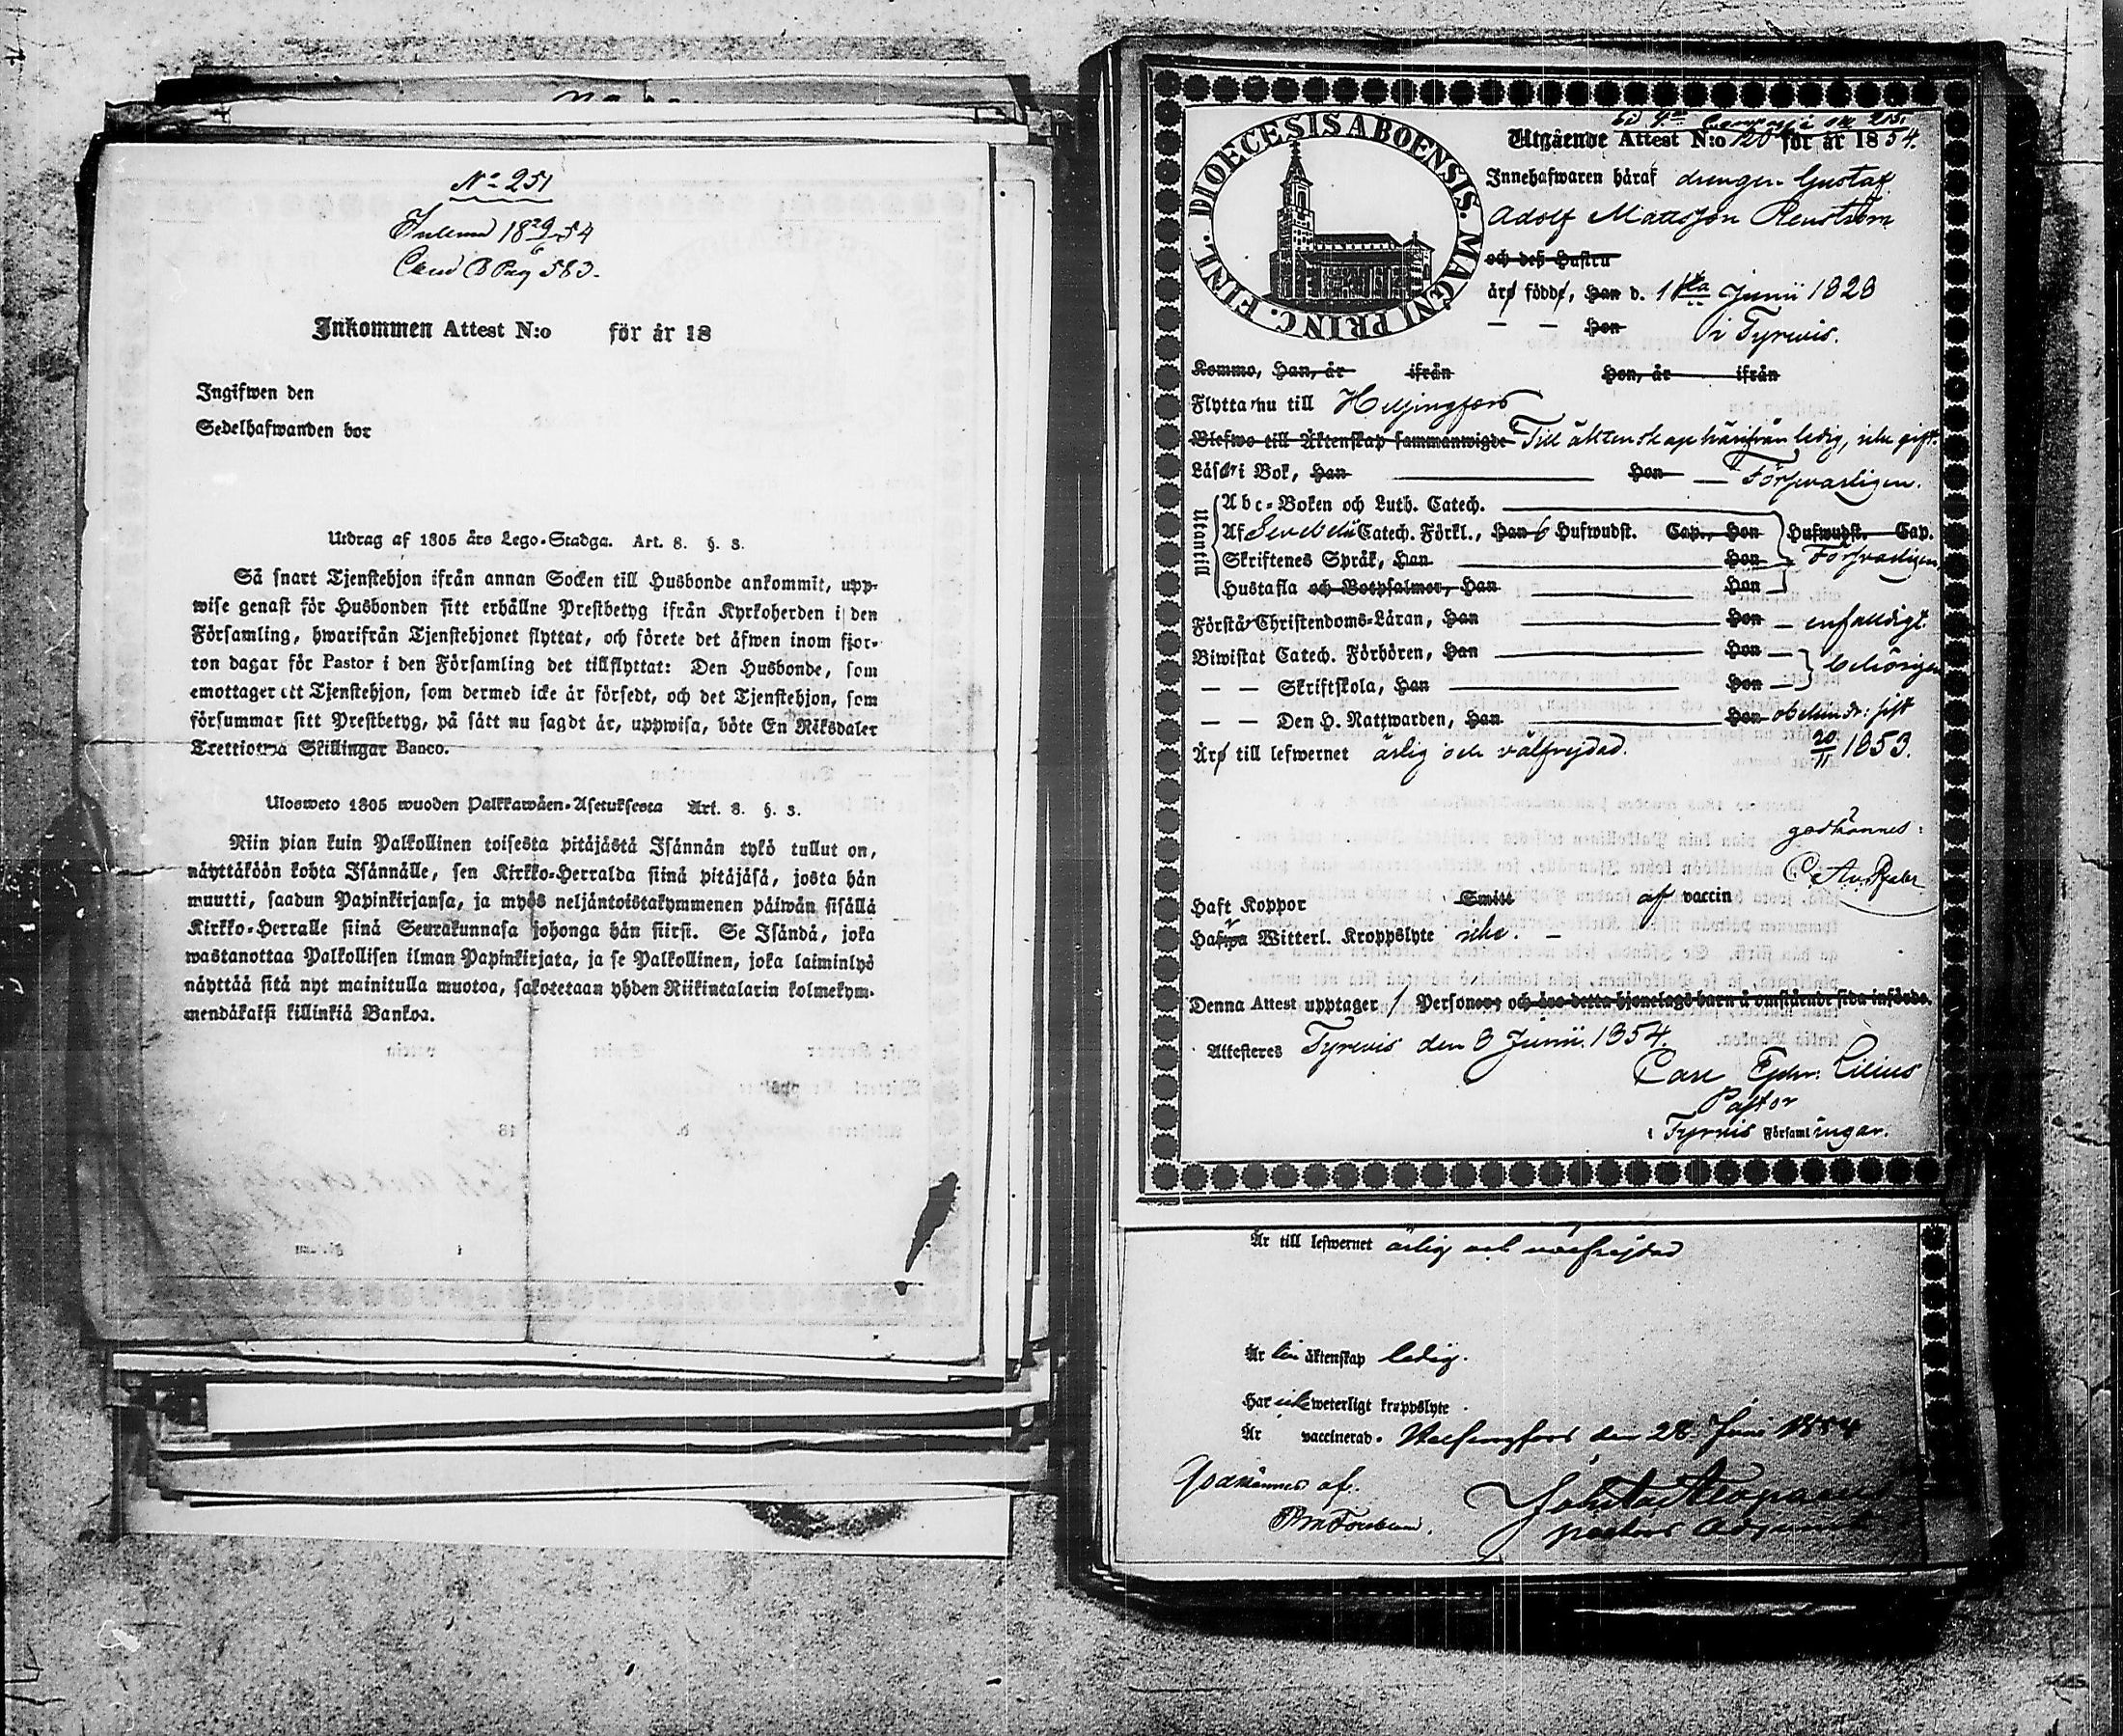 No 251
Cand B Pag 583.
Inkommen Attest N:o för år 18
Ingifwen den
Sedelhafwanden bor
Utdrag af 1805 års Lego-Stadga. Art. 8. §. 3.
Så snart Tjenstehjon ifrån annan Socken till Husbonde ankommit, upp-
wise genast för Husbonden sitt erhållne Prestbetyg ifrån Kyrkoherden i den
Församling, hwarifrån Tjenstehjonet flyttat, och förete det äfwen inom fjor-
ton dagar för Pastor i den Församling det tillflyttat: Den Husbonde, som
emottager ett Tjenstehjon, som dermed icke är försedt, och det Tjenstehjon, som
försummar sitt Prestbetyg, på sätt nu sagdt är, uppwisa, böte En Riksdaler
Trettiotwå Skillingar Banco.
Ulosweto 1805 wuoden Palkkawäen-Asetuksesta Art. 8. §. 3.
Niin pian kuin Palkollinen toisesta pitäjästä Isännän tykö tullut on,
näyttäköön kohta Isännälle, sen Kirkko-Herralda siinä pitäjäsä, josta hän
muutti, saadun Papinkirjansa, ja myös neljäntoistakymmenen päiwän sisällä
Kirkko-Herralle siinä Seurakunnasa johonga hän siirsi. Se Isändä, joka
wastanottaa Palkollisen ilman Papinkirjata, ja se Palkollinen, joka laiminlyö
näyttää sitä nyt mainitulla muotoa, sakotetaan yhden Riikintalarin kolmekym-
mendäkaksi killinkiä Bankoa.
DIOECESIS ABOENSIS. MAGNI PRINC. FINL.
Utgående Attest N:o 120 för år 1854.
Innehafwaren häraf drengen Gustaf
Adolf Mattsson Renström
och deß Hustru
äro födde, Han d. 1sta Junii 1828
— — Hon i Tyrwis.
Kommo, Han, år ifrån Hon, år ifrån
Flytta nu till Helsingfors
Blefwo till Äktenskap sammanwigde Till äktenskap härifrån ledig, icke gift.
Läser i Bok, Han Hon — Försvarligen.
Utantill
Abc-Boken och Luth. Catech.
Af Svebelii Catech. Förkl., Han 6 Hufwudst. Cap., Hon Hufwudst. Cap.
Skriftenes Språk, Han Hon Försvarligen
Hustafla och Botpsalmer, Han Hon
Förstår Christendoms-Läran, Han Hon — enfaldigt.
Biwistat Catech. Förhören, Han Hon — behörigen
— — Skriftskola, Han Hon —
— — Den H. Nattwarden, Han Hon sist
Äro till lefwernet ärlig och välfrejdad. 20/11 1853.
godkännes:
Haft Koppor Smitt af vaccin
Hafwa Witterl. Kroppslyte icke. —
Denna Attest upptager 1 Personer och äro detta hjonelags barn å omstående sida införde.
Attesteres Tyrvis den 8 Junii 1854.
Carl Ephr. Lilius
Pastor
i Tyrvis Församlingar.
Är till lefwernet ärlig och välfrejdad
Är till äktenskap ledig.
Har icke weterligt kroppslyte
Är vaccinerad. Helsingfors den 28 Juni 1854
Godkännes af.